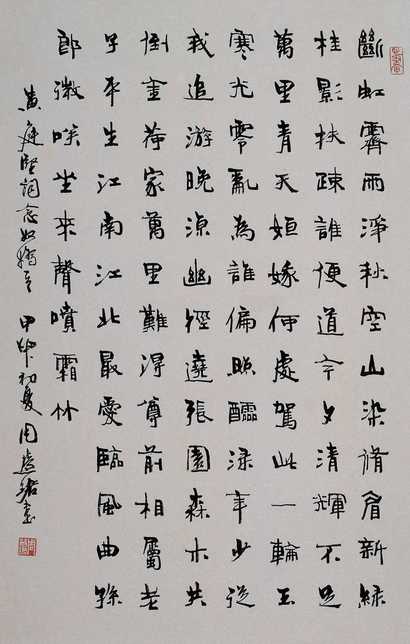 斷虹霽雨淨秋空山染脩眉新綠
桂影扶疎誰便道今夕清輝不足
萬里青天姮娥何處駕此一輪玉
寒光零亂為誰偏照醽淥年少從
我追游晚涼幽徑遶張園森木共
倒金荷家萬里難得樽前相屬老
子平生江南江北最愛臨風曲孫
郎微咲坐來聲噴霜竹
黃庭堅詞念奴嬌 甲初夏周慧珺書